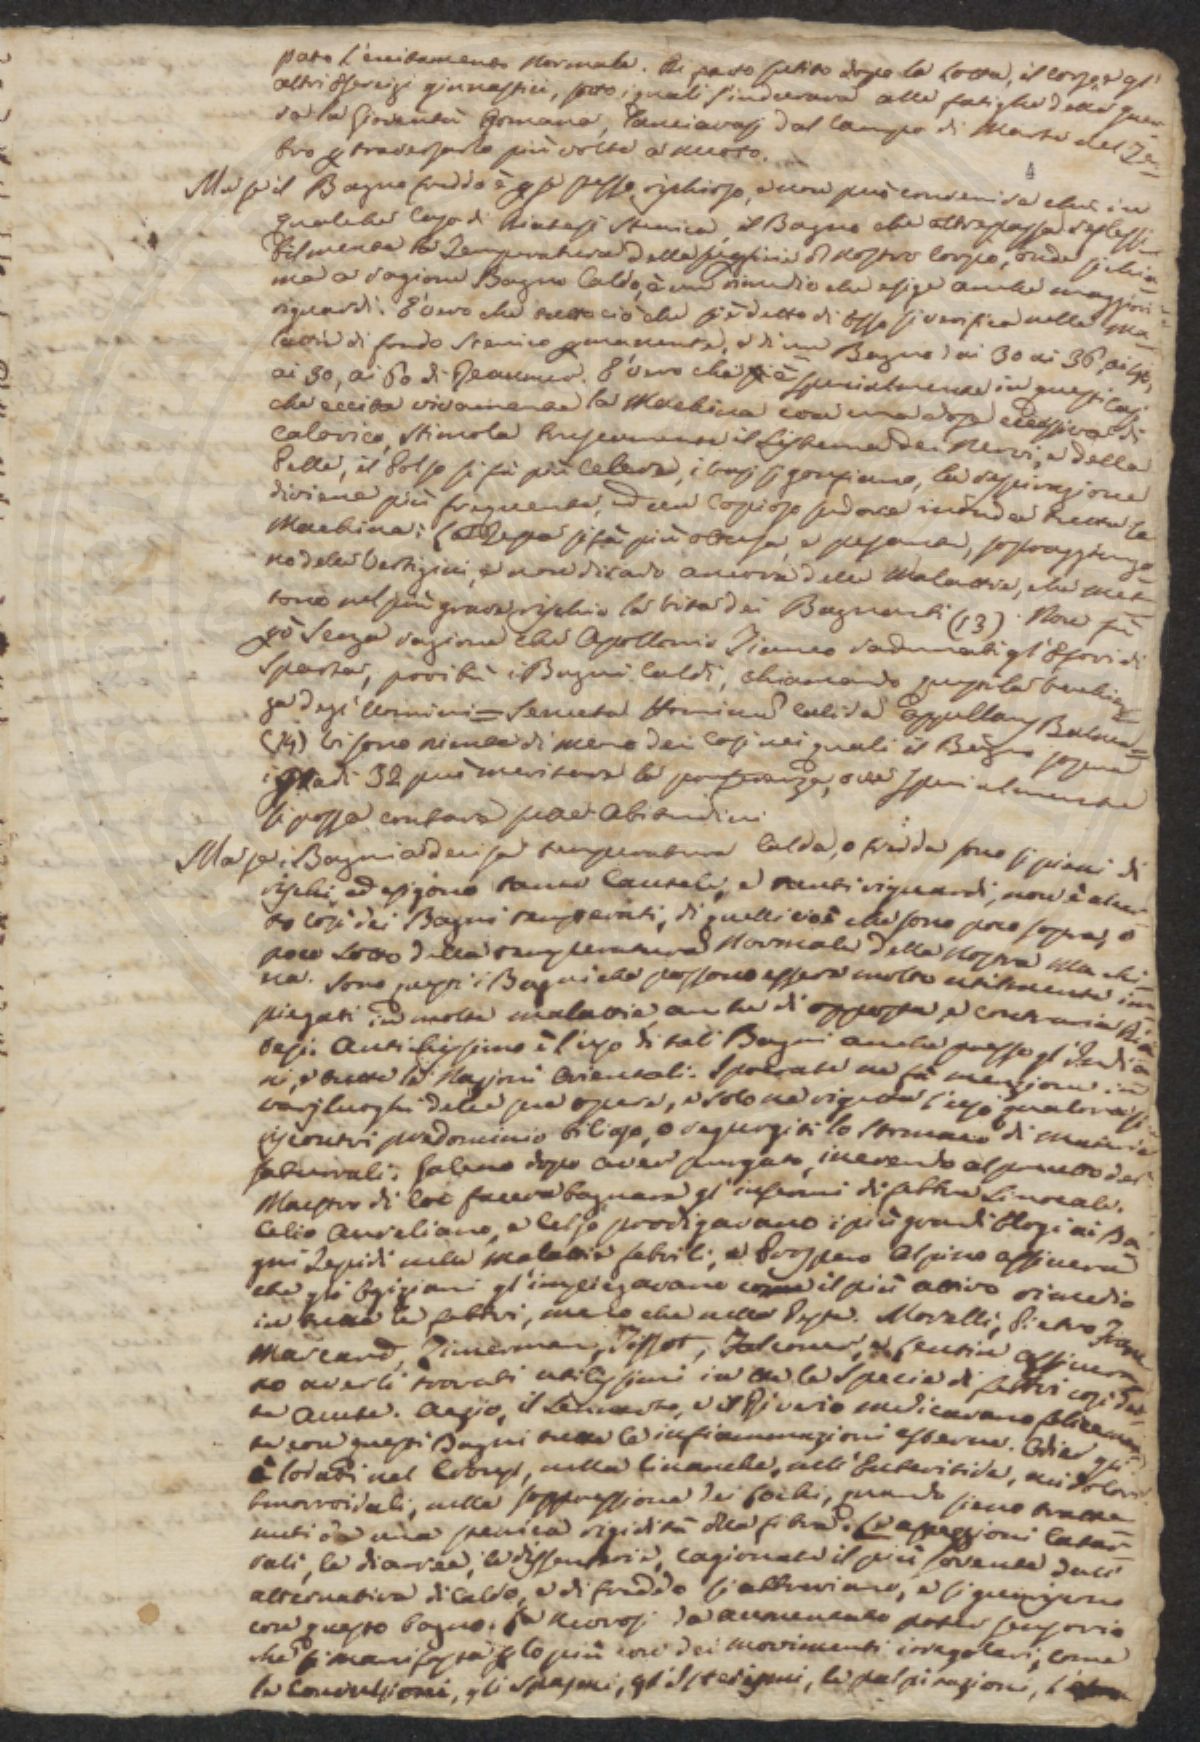 pato l'eccitamento Normale. Di fatto subito dopo la Lotta, il corso e gl'
altri Esercizi ginnastici, sotto i quali s'indurava alle fatighe della guer-
ra la Gioventù Romana, lanciavasi dal Campo di Marte nel Te-
bro p traversarlo più volte a nuoto.
4
Ma se il Bagno freddo è p sé stesso rischioso, e non può convenire che in
qualche Caso di Diatesi Stenica, il Bagno che oltrepassa
la Temperatura della del Nostro Corpo, onde si chia-
ma a ragione Bagno Caldo, è un rimedio che esige anche maggiori
riguardi. È vero che tutto ciò che si è detto di Esso si verifica nelle Ma-
lattie di fondo Stenico permanente, e di un Bagno dai 30 ai 36,
ai 50, ai 60 di Reaumur. È vero che specialmente in questi Casi
che eccita vivamente la Machina con una dose eccessiva di
Calorico, stimola il Sistema dei Nervi, e della
Pelle, il Polso si fà più Celere, i vasi si gonfiano, la respirazione
diviene più frequente, ed un Copioso sudore inonda tutta la
Machina: la Testa si fà più ottusa, e pesante, sopraggiungo-
no delle Vertigini, e non di rado ancora delle Malattie, che met-
tono nel più grave rischio la vita dei Bagnanti (13). Non fù
p'ò Senza ragione che Apollonio Tianeo radunati gl'Efori di
Sparta, proibì i Bagni Caldi, chiamando questi la vecchiez-
za degl'Uomini = Senecta Hominum Calida Appellans Balnea =
(14) Vi sono nientedimeno dei Casi nei quali il Bagno sopra
i gradi 32 può meritare la preferenza, ove specialmente
si possa contare sull'Abitudine
Ma se i Bagni a decisa temperatura Calda, o fredda sono sì pieni di
rischi, ed esigono tante Cautele, e tanti riguardi, non è al cer-
to così dei Bagni temperati, di quelli cioè che sono poco sopra, o
poco sotto della temperatura Normale della Nostra Machi-
na. Sono questi i Bagni che possono essere molto utilmente im-
piegati in molte malattie, anche di opposta, e contraria Dia-
tesi. Antichissimo è l'uso di tali Bagni anche presso gl'India-
ni, e tutte le Nazioni Orientali. Ipocrate ne fà menzione in
varj luoghi delle sue opere, e solo ne vieta l'uso qualora si
riscontri predominio bilioso, o rigurgiti lo Stomaco di materie
saburrali. Galeno dopo aver purgato, inerendo al precetto del
Maestro di Coo faceva bagnare gl'infermi di febbre Sinocale.
Celio Aureliano, e Celso prodigavano i più grandi Elogi ai Ba-
gni Tepidi nelle malattie febrili, e Prospero Alpino assicura
che gl'Egiziani gl'impiegavano come il più attivo rimedio
in tutte le febbri, meno che nella Peste. Morelli, Pietro Frank
Marcand, Zimerman, Tissot, Falconer, e Gentin assicura-
no averli trovati utilissimi in tutte le Specie di febbri così det-
te Acute. Aezio, il Sennerto, e il Riverio medicavano felicemen-
te con questi Bagni tutte le infiammazioni esterne. Odier gli
à lodati nel Croup, nella Cinanche, nell'Enteritide, nei dolori
Emorroidali, nella soppressione dei Lochi, quando sieno tratte-
nuti da una stenica rigidità della fibra. Le affezioni Catar-
rali, le diarree, le dissenterie, cagionate il più sovente dall'
alternativa di Caldo, e di freddo si abbreviano, e si guariscono
con questo bagno. Le Nevrosi da aumentato poter sensorio
che si manifesta p lo più con dei movimenti irregolari, come
le Convulsioni, gli spasmi, gl'Isterismi, le palpitazioni,